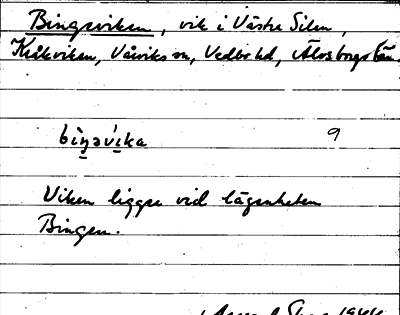 Bingsviken, vik i Västra Silen,
Kråkviken, Vårviks sn, Vedbo hd, Älvsborgs län.
bìŋəvíka 9
Viken ligger vid lägenheten
Bingen.
1944